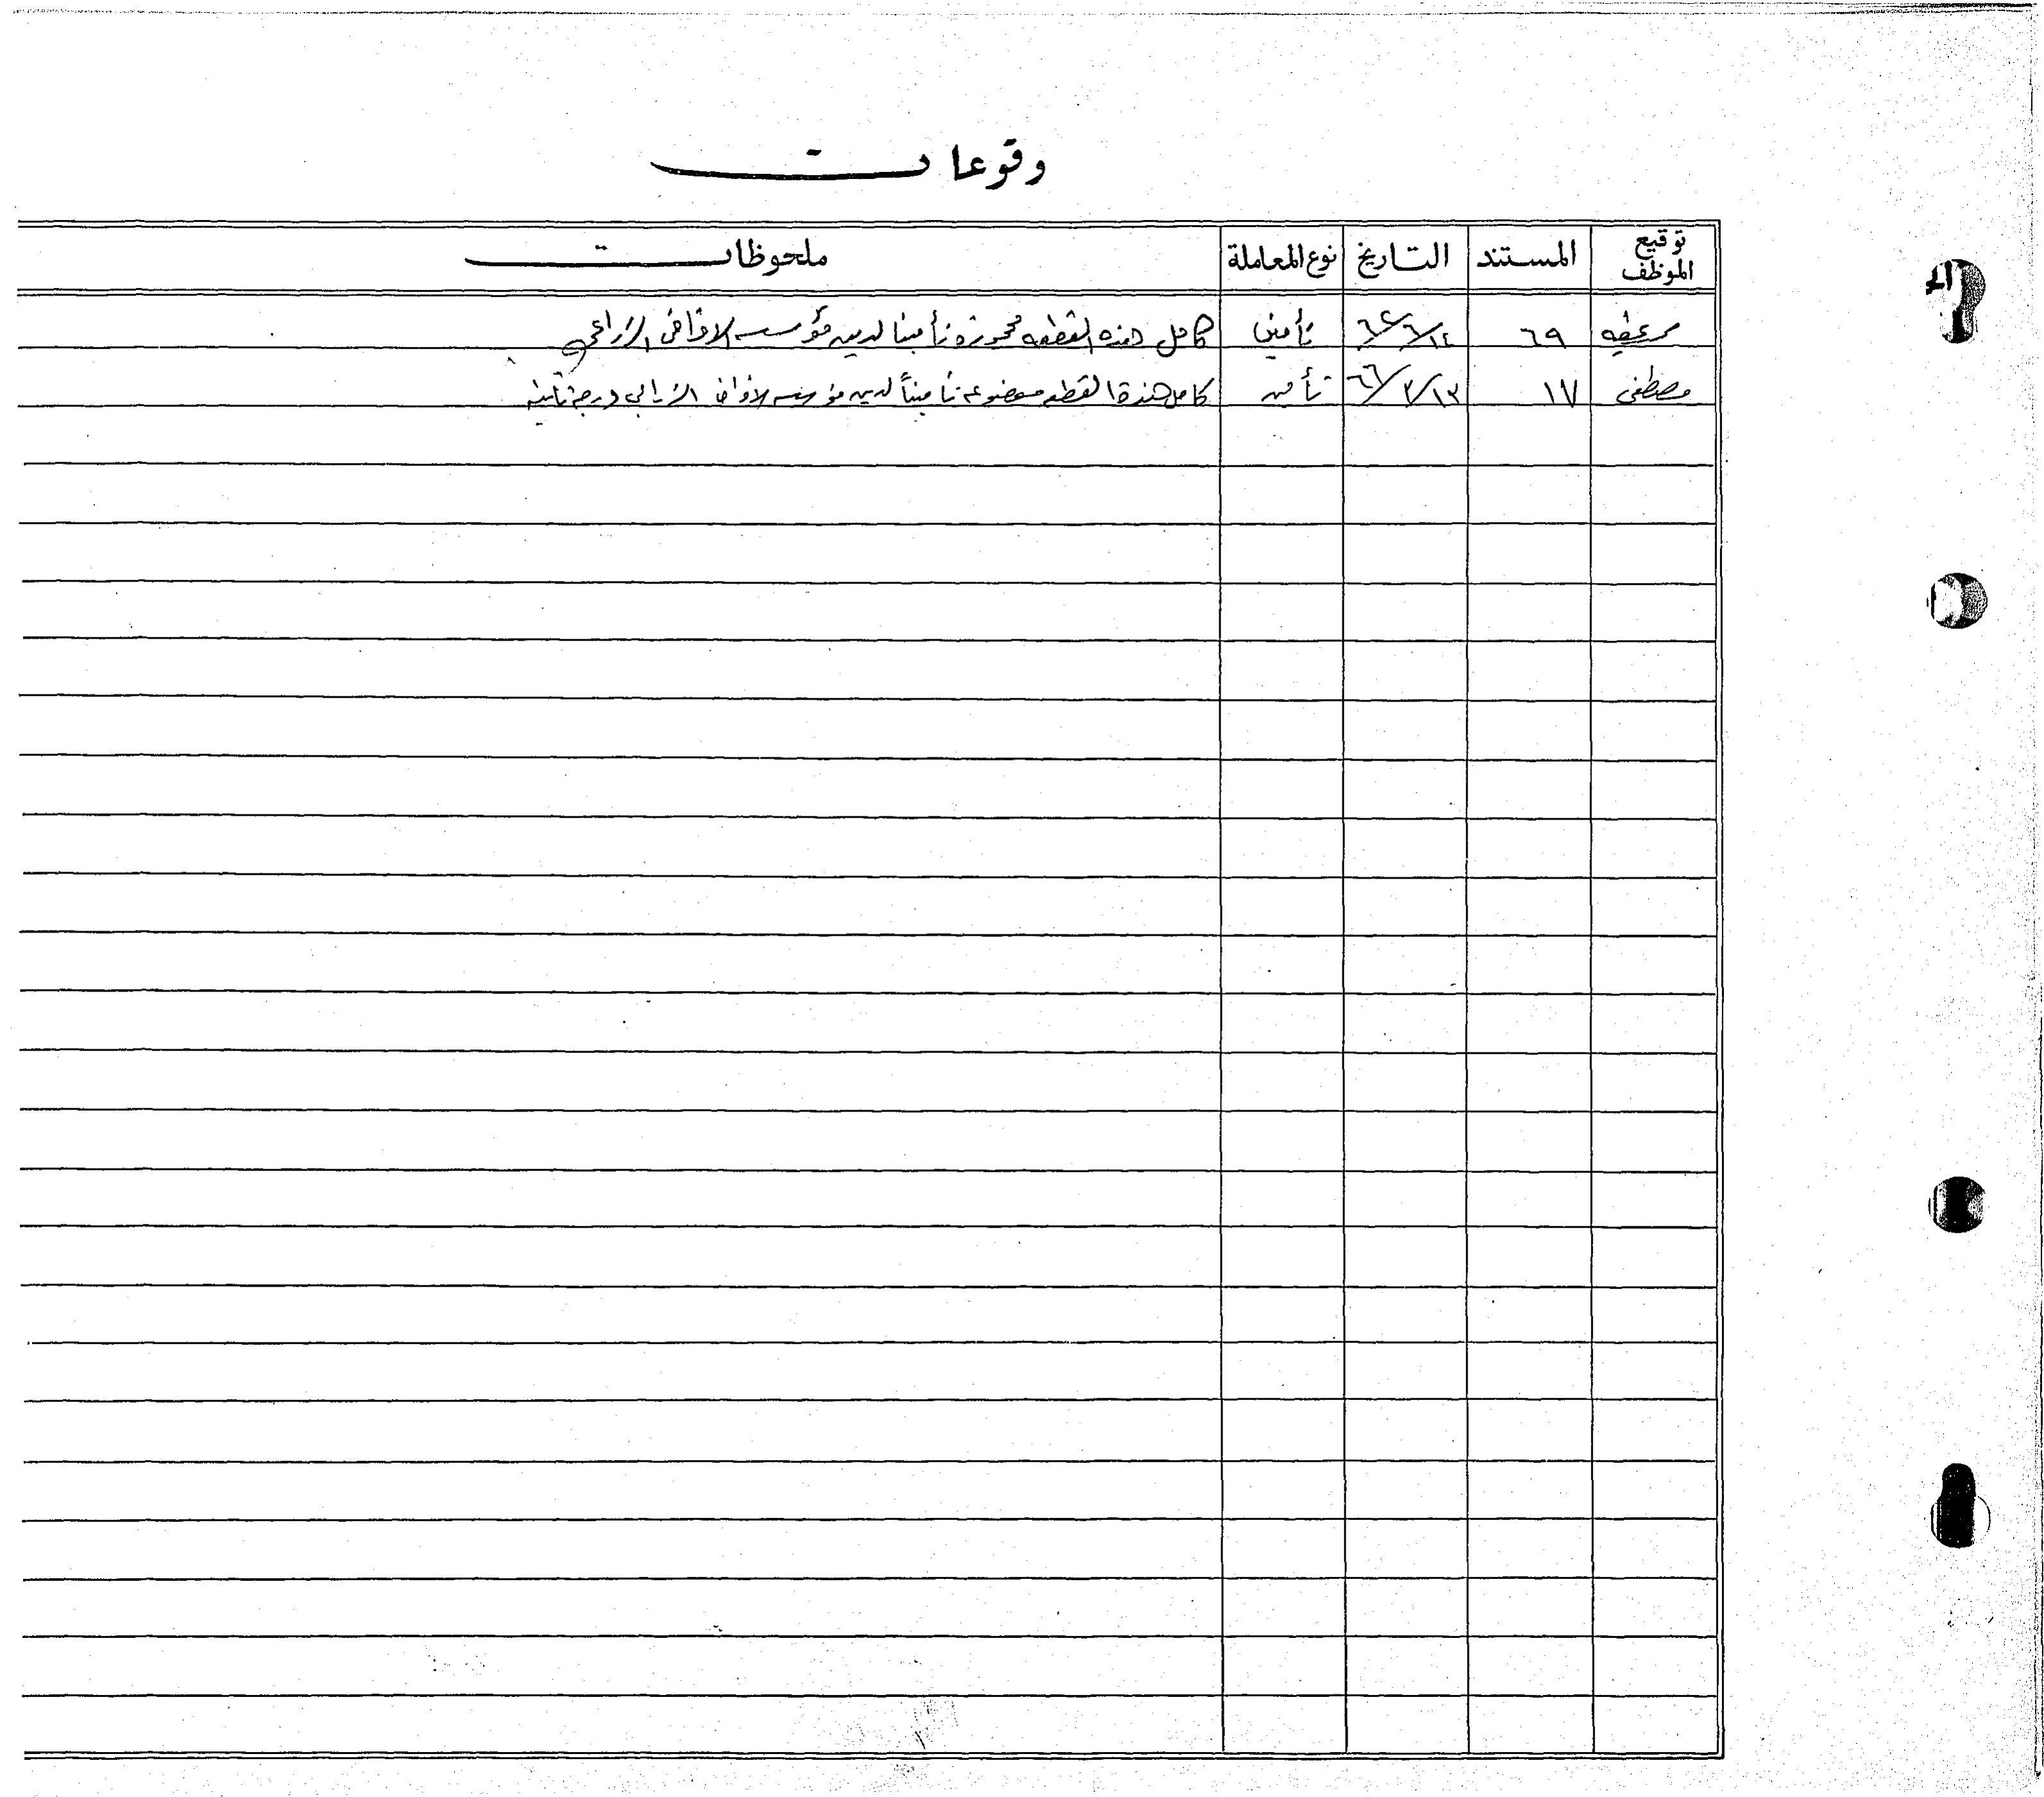 وقوعات
توقيع الموظف المستند التاريخ نوع المعاملة ملحوظات
٦٩ تأمين كامل هذه القطعه محجوزة تأمينا لدين مؤسسة الاقراض الزراعي
مصطفى ١٧ ٦٦/٢/١٣ تأمين كامل هذة القطعه موضوعه تأميناً لدين مؤسسه الاقراض الزراعي درجة ثانية